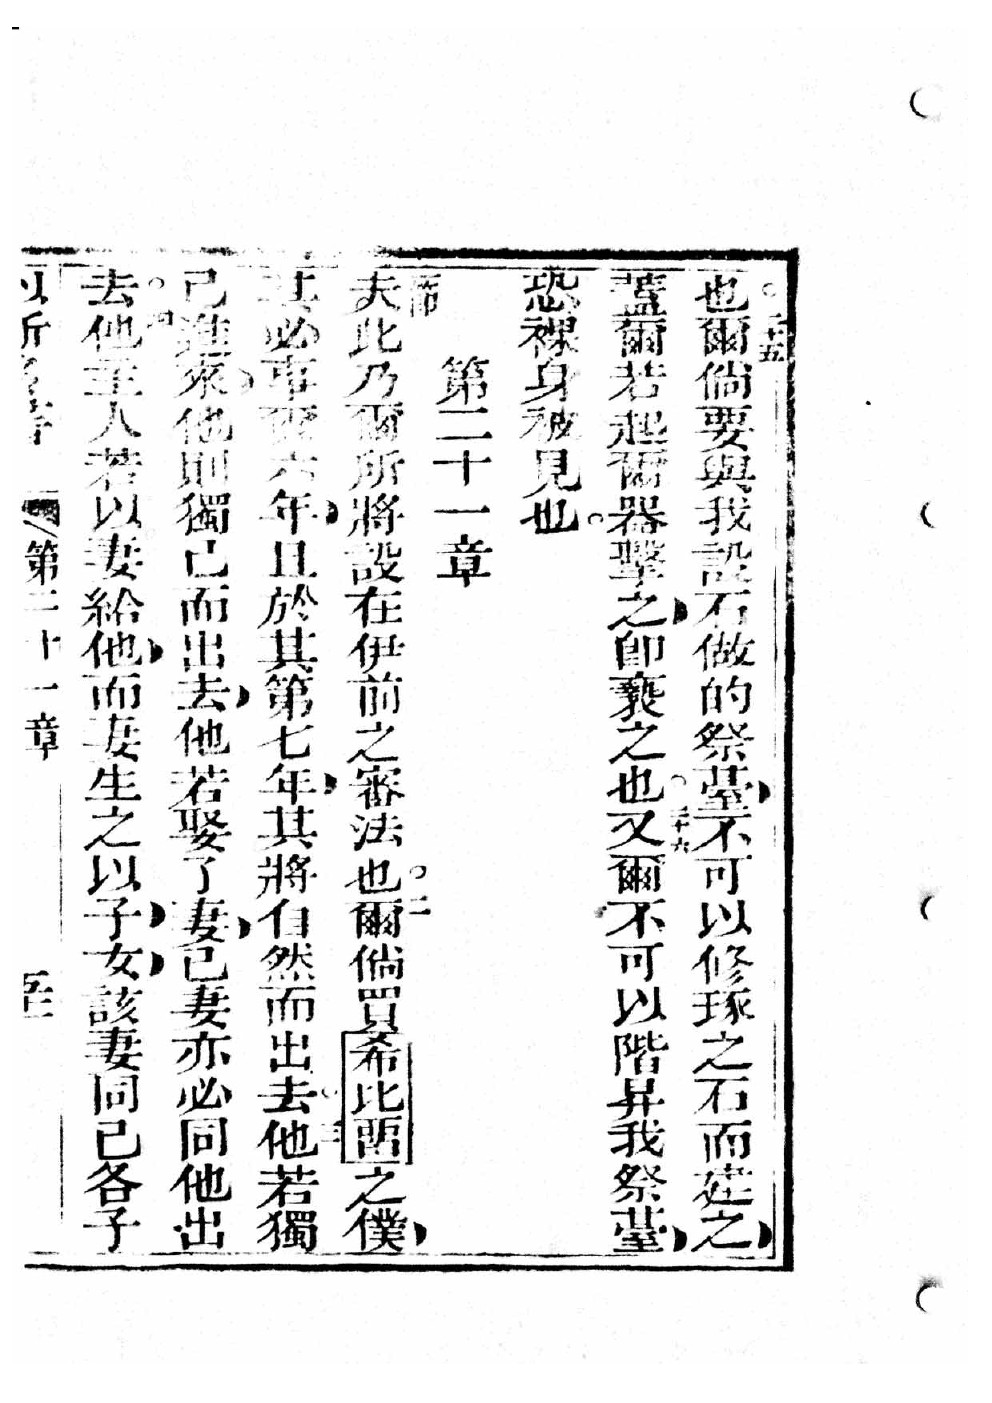 也爾倘要與我設石做的祭臺不可以修琢之石而建之
蓋爾若起爾器擊之卽褻之也又爾不可以階昇我祭臺
恐裸身被見也
第二十一章
夫此乃爾所將設在伊前之審法也爾倘買希比耶之僕
其必事爾六年且於其第七年其將自然而出去他若獨
己進來他則獨己而出去他若娶了妻己妻亦必同他出
去他主人若以妻給他而妻生之以子女該妻同己各子
第二十一章